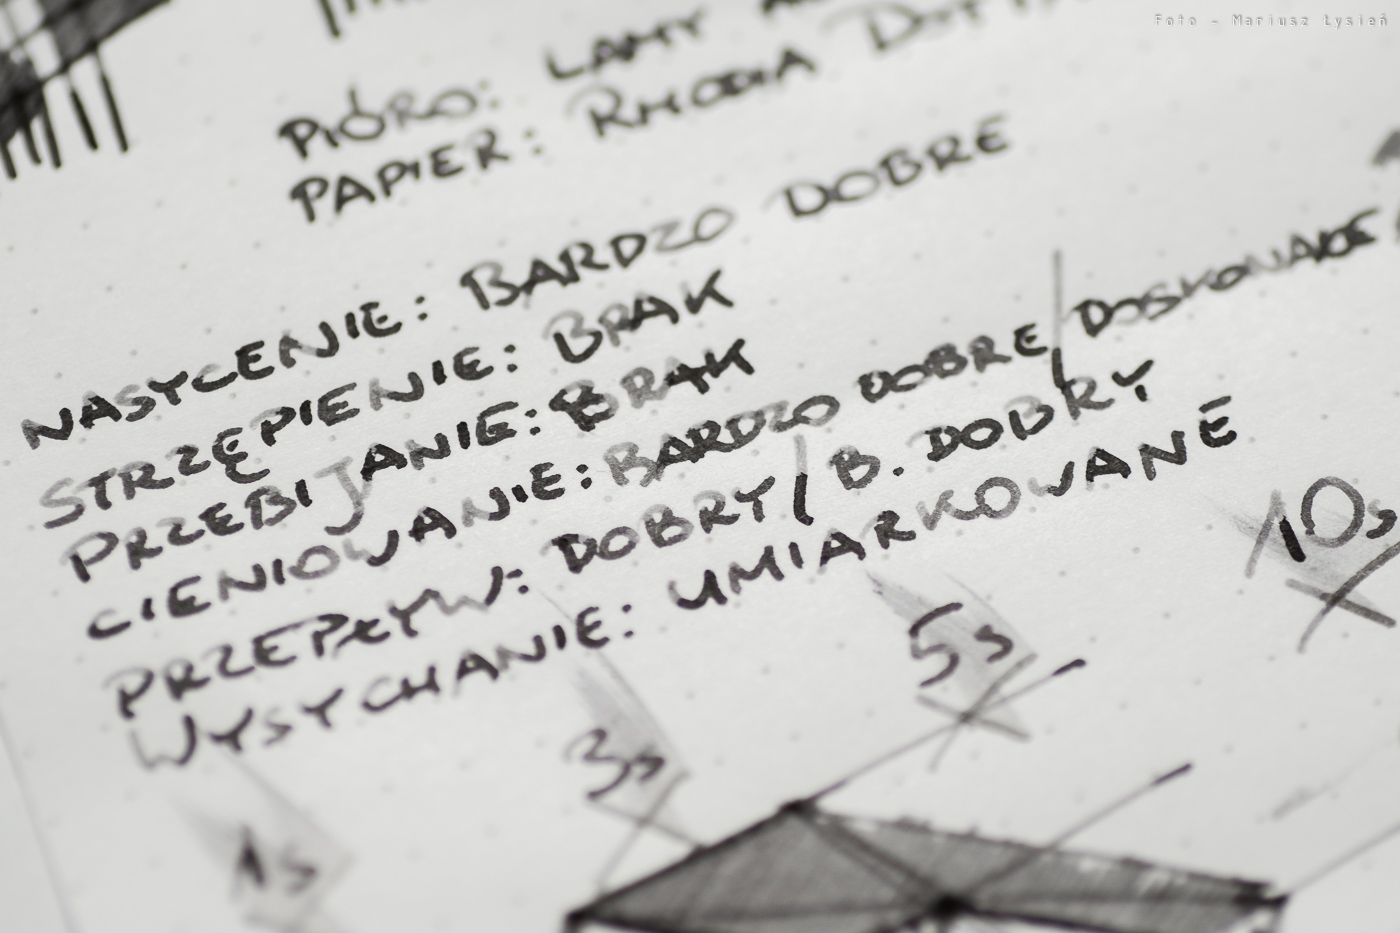 Foto - Mariusz Łysień
PIÓRO: LAMY
PAPIER: RHODIA
NASYCENIE: BARDZO DOBRE
STRZĘPIENIE: BRAK
PRZEBIJANIE: BRAK
CIENIOWANIE: BARDZO DOBRE / DOSKONAŁE
PRZEPŁYW: DOBRY / B. DOBRY
WYSYCHANIE: UMIARKOWANE
1s 3s 5s 10s